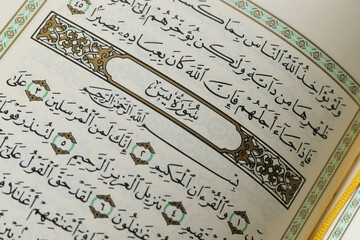 وَلَوْ يُؤَاخِذُ اللَّهُ النَّاسَ بِمَا كَسَبُوا
ظَهْرِهَا مِن دَابَّةٍ وَلَٰكِن يُؤَخِّرُهُمْ إِلَىٰ
فَإِذَا جَاءَ أَجَلُهُمْ فَإِنَّ اللَّهَ كَانَ بِعِبَادِهِ بَصِيرًا ٤٥
سُورَةُ يس
بِسْمِ اللَّهِ الرَّحْمَٰنِ الرَّحِيمِ
يس وَالْقُرْآنِ الْحَكِيمِ ٢ إِنَّكَ لَمِنَ الْمُرْسَلِينَ ٣ عَلَىٰ
تَنزِيلَ الْعَزِيزِ الرَّحِيمِ ٥ لِتُنذِرَ قَوْمًا
لَقَدْ حَقَّ الْقَوْلُ عَلَىٰ